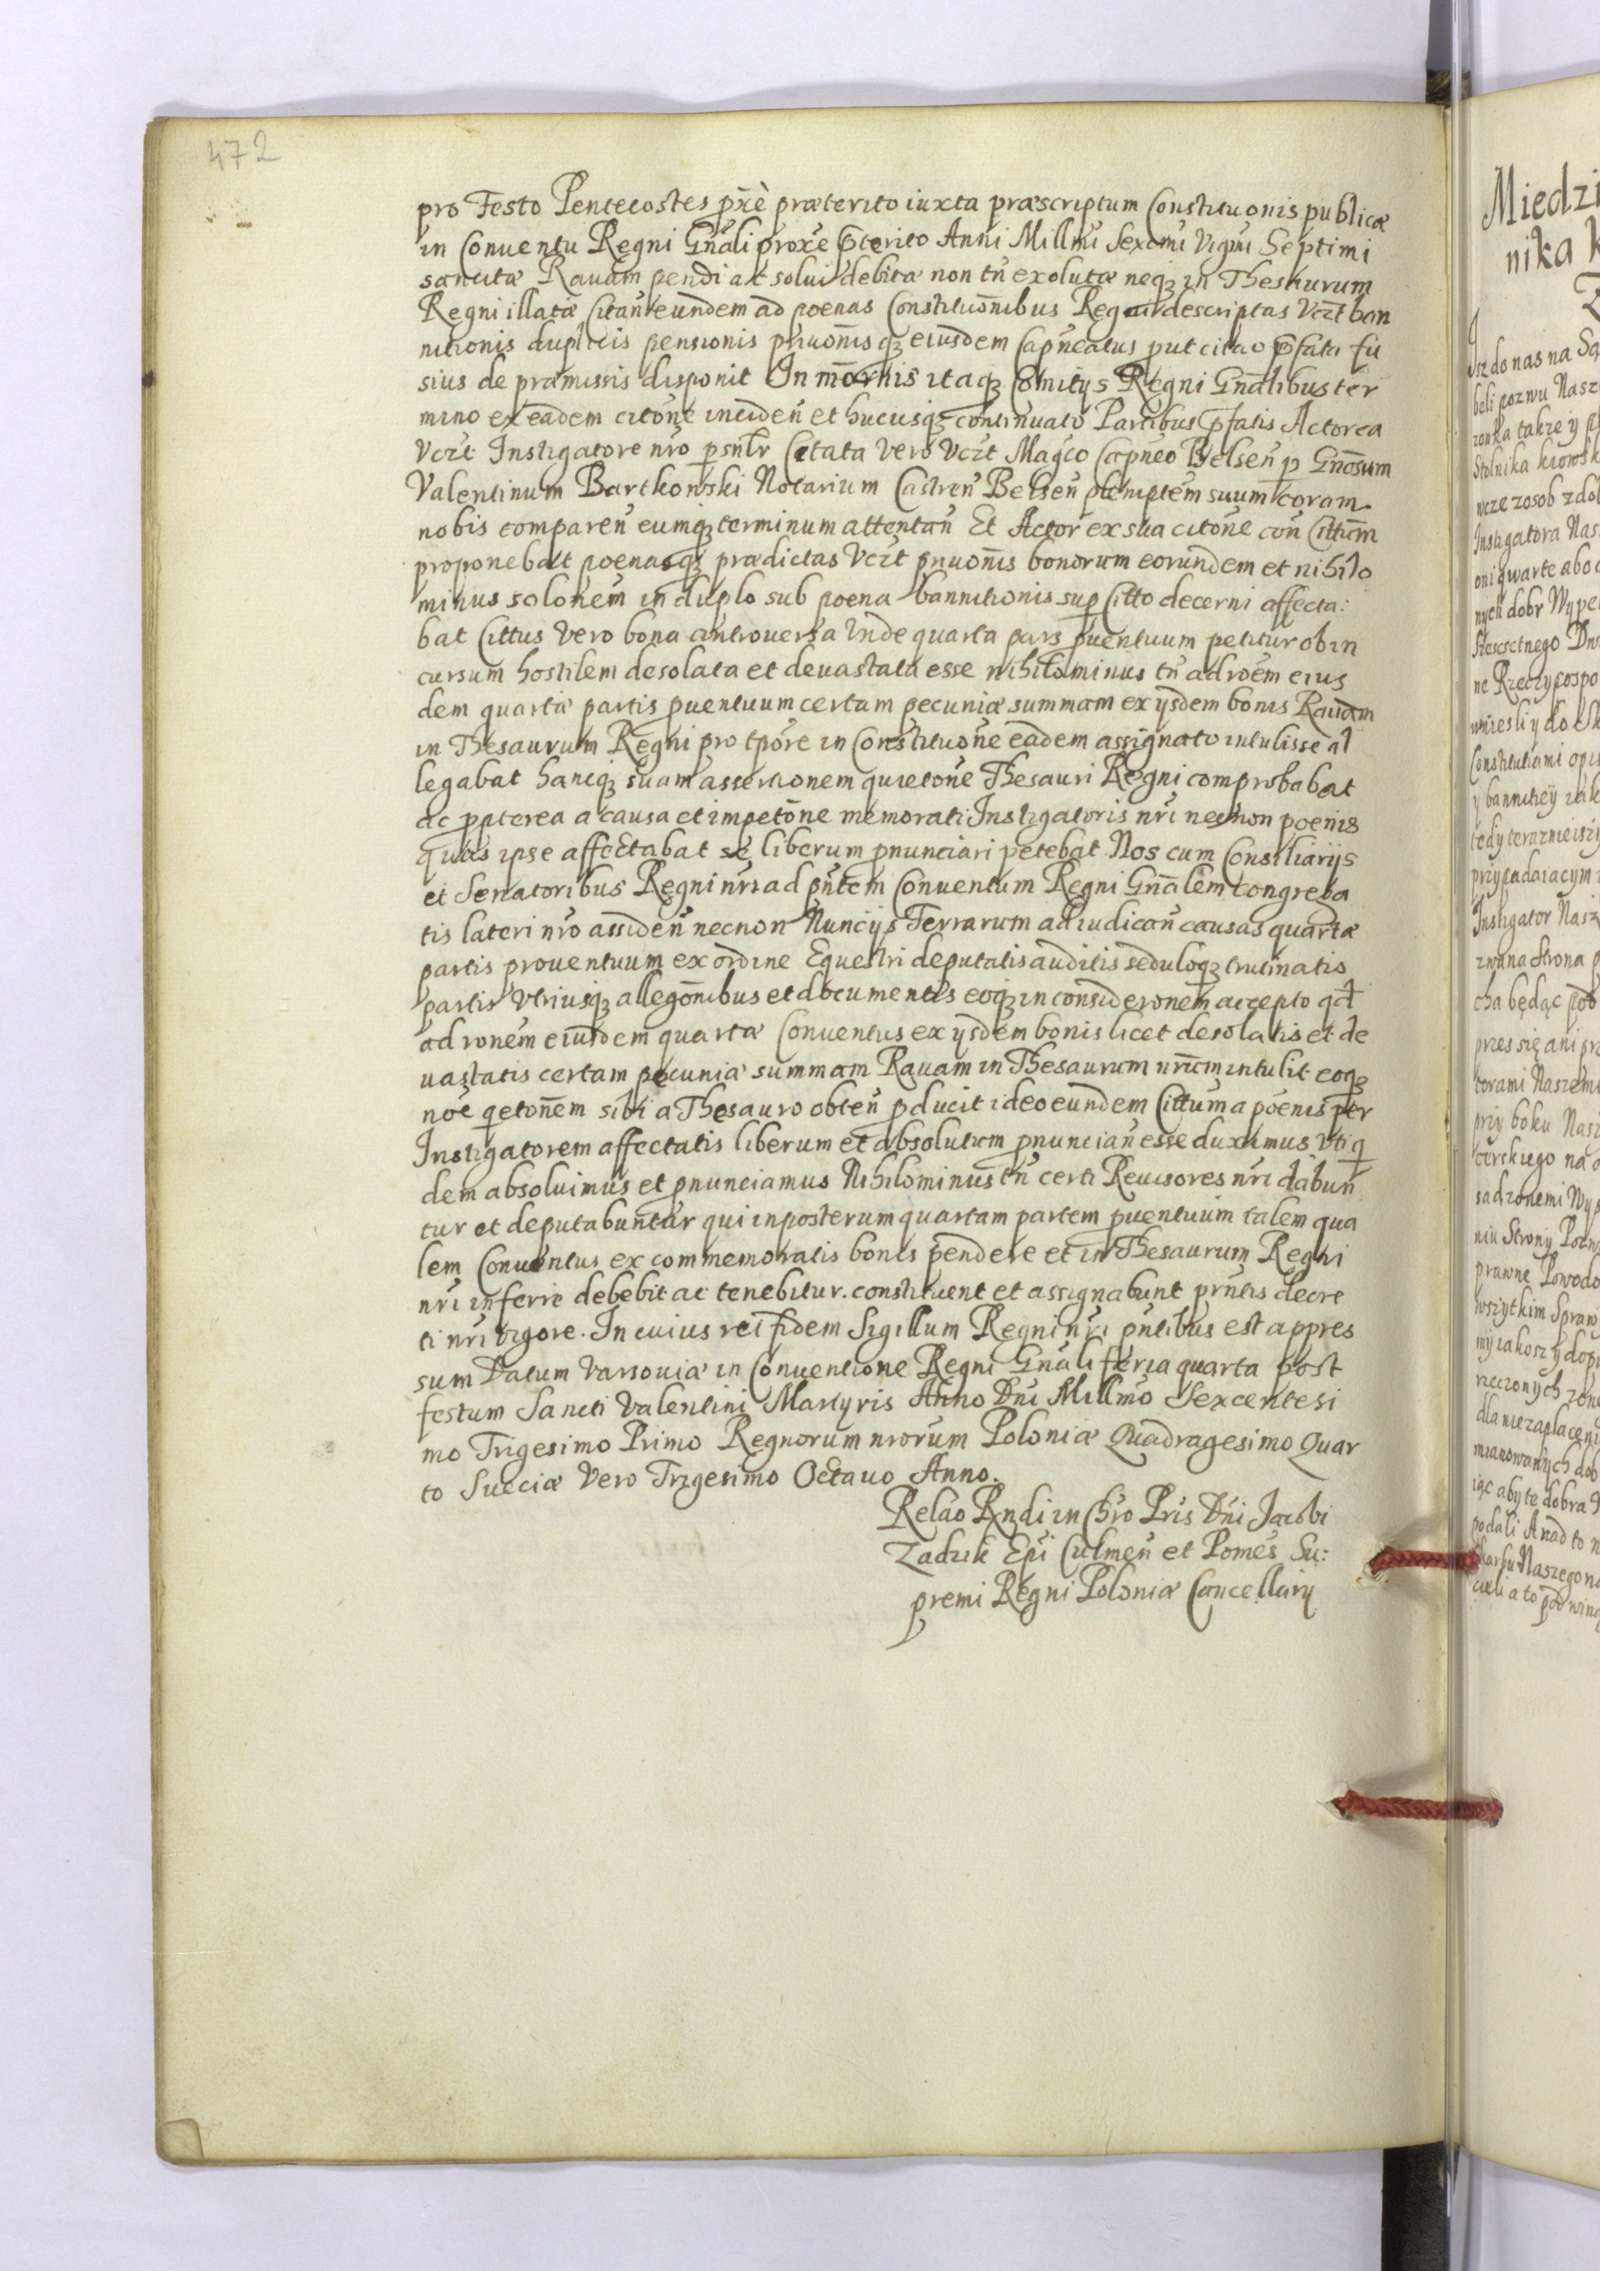 472
pro Festo Pentecostes pxẽ præterito iuxta præscriptum Constituonis publicæ
in Conuentu Regni Gn̄ali proxe p̄terito Anni Millmi Sexcmi Vigmi Septimi
sancitæ Rauam pendi ac solui debitæ non tn̄ exolutæ neq₃ in Thesaurum
Regni illatæ Citan̄ eundem ad poenas Constituōnibus Regni descriptas Vczt ban
nitionis duplicis pensionis priuōnis q₃ eiusdem Capn̄eatus put citao p̄fata fu
sius de præmissis disponit In mōrnis itaq₃ Comitÿs Regni Gn̄alibus ter
mino ex eadem citōne inciden̄ et hucusq₃ continuato Partibus p̄fatis Actorea
Vczt Instigatore nr̄o psn̄lr Citata vero Vczt Magco Capneo Belsen̄ p Gnōsum
Valentinum Bartkowski Notarium Castren̄ Belsen̄ plemptem suum coram
nobis comparen̄ eumq₃ terminum attentan̄ Et Actor ex sua citōne con̄ Cittum
proponebat poenasq₃ prædictas Vczt priuōnis bonorum eorundem et nihilo
minus solonem in duplo sub poena bannitionis sup Citto decerni affecta:
bat Cittus vero bona controuersa inde quarta pars puentuum petitur ob in
cursum hostilem desolata et deuastata esse nihilominus tn̄ ad roēm eius
dem quartæ partis puentuum certam pecuniæ summam ex ÿsdem bonis Rauam
in Thesaurum Regni pro tpore in Constituōne eadem assignato intulisse al
legabat hancq₃ suam assertionem quietōne Thesauri Regni comprobabat
ac ppterea a causa et impetōne memorati Instigatoris nr̄i necnon poenis
quas ipse affectabat se liberum pnunciari petebat Nos cum Consiliarÿs
et Senatoribus Regni nr̄i ad pn̄tem Conuentum Regni Gn̄alem congrega
tis lateri nr̄o assiden̄ necnon Nuncÿs Terrarum ad iudican̄ causas quartæ
partis prouentuum ex ordine Equestri deputatis auditis seduloq₃ trutinatis
partis utriusq₃ allegōnibus et documentis eoq₃ in consideronem accepto qd
ad ronem eiusdem quartæ Conuentus ex ÿsdem bonis licet desolatis et de
uastatis certam pecuniæ summam Rauam in Thesaurum nr̄um intulit eoq₃
noē qetōnem sibi a Thesauro obten̄ pducit ideo eundem Cittum a poenis per
Instigatorem affectatis liberum et absolutum pnuncian̄ esse duximus, vti q
dem absoluimus et pnunciamus Nihilominus tn̄ certi Reuisores nr̄i dabun
tur et deputabuntur qui inposterum quartam partem puentuum talem qua
lem Conuentus ex commemoratis bonis pendere et in Thesaurum Regni
nr̄i inferre debebit ac tenebitur. constituent et assignabunt prn̄tis decre
ti nr̄i vigore. In cuius rei fidem Sigillum Regni nr̄i pn̄tibus est appres
sum Datum Varsouiæ in Conuentione Regni Gn̄ali feria quarta post
festum Sancti Valentini Martyris Anno Dni Millmo Sexcentesi
mo Trigesimo Primo Regnorum nrorum Poloniæ Quadragesimo Quar
to Sueciæ Vero Trigesimo Octauo Anno.
Relao Rndi in Chro Pris Dni Jacobi
Zadzik Epi Culmen̄ et Pomes Su:
premi Regni Poloniæ Cancellarÿ
Miedzi
nika k
Isz do nas na Są
beli pozwu Nasze
zonka takze ÿ
Stolnika kiowsk
Instigatora Nas
nych dobr Wype
ne Rzeczÿpospo
Constitutiami opis
tedy teraznieiszÿ
przÿpadaiacym
Instigator Nasz
zwana Strona p
cha będąc
przes się ani pr
torami Naszemi
przÿ boku Nasz
niu Stronÿ
prawne Powodo
wszÿtkim Spraw
rzeczonych
dla niezapłaceni
mianowanÿch dob
iąc abÿ te dobra
podali A nad to n
skarbu Naszego
cieli a to pod winą